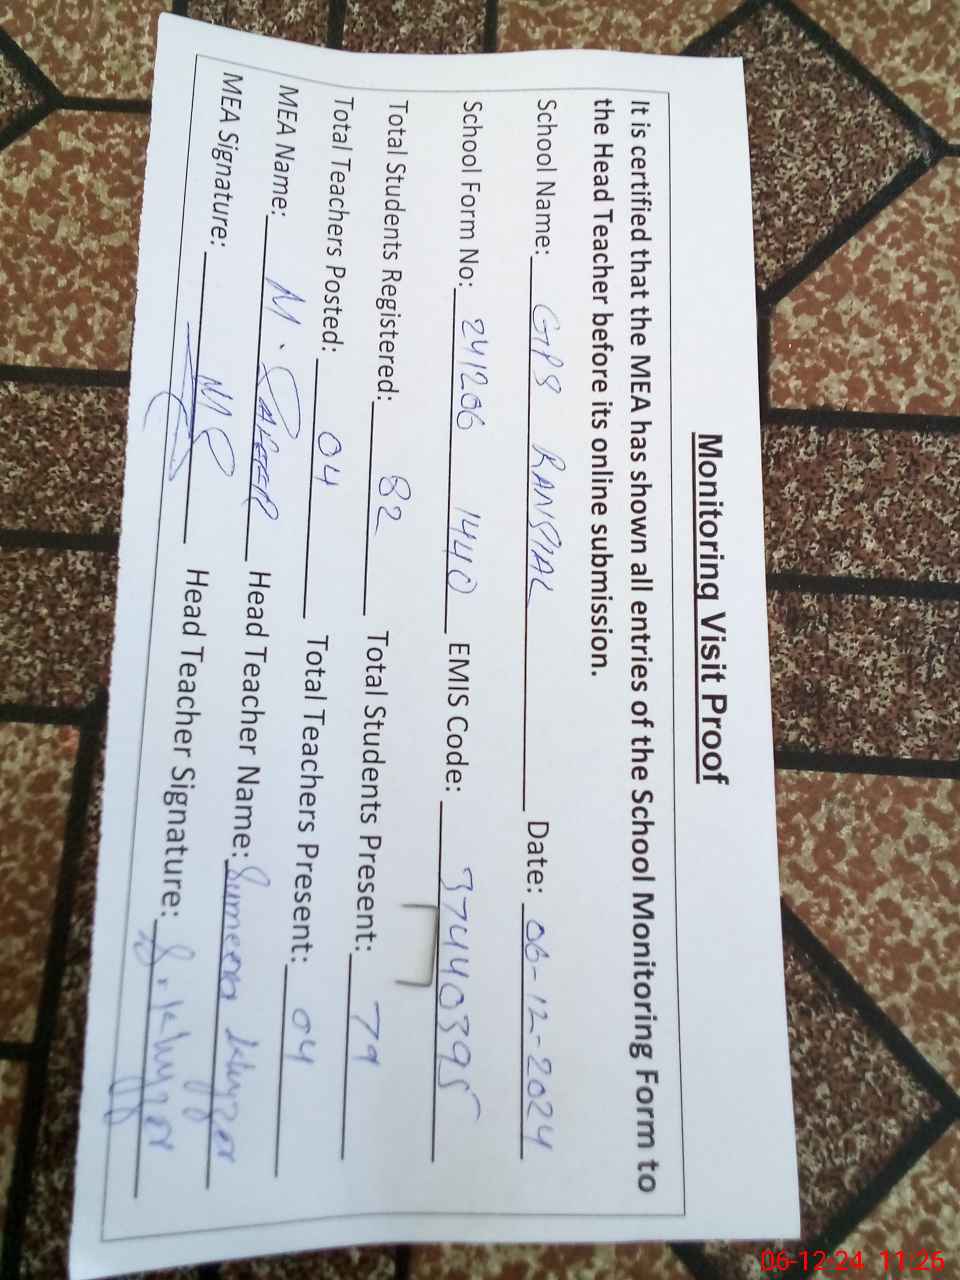 Monitoring Visit Proof
It is certified that the MEA has shown all entries of the School Monitoring Form to
the Head Teacher before its online submission.
School Name: GPS RANSIAL Date: 06-12-2024
School Form No: 241206 1440 EMIS Code: 37440395
Total Students Registered: 82 Total Students Present: 79
Total Teachers Posted: 04 Total Teachers Present: 04
MEA Name: M. SAFEER Head Teacher Name: Sumeera
MEA Signature: MS Head Teacher Signature: S.
06-12-24 11:25